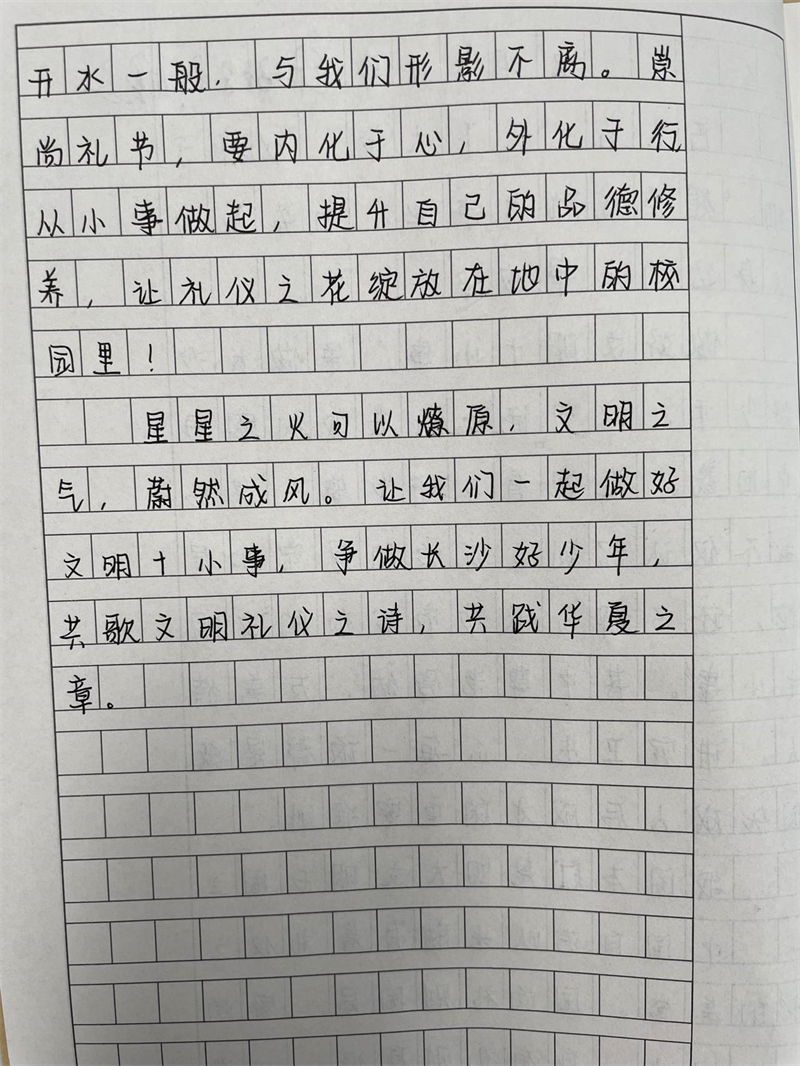 开水一般，与我们形影不离。崇
尚礼节，要内化于心，外化于行
从小事做起，提升自己的品德修
养，让礼仪之花绽放在地中的校
园里！
星星之火可以燎原，文明之
气，蔚然成风。让我们一起做好
文明十小事，争做长沙好少年，
共歌文明礼仪之诗，共践华夏之
章。